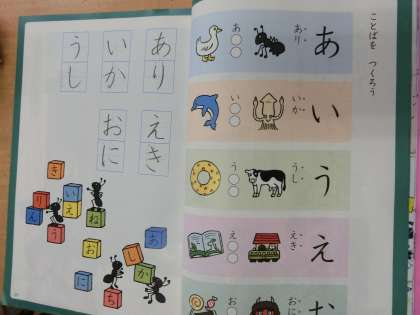 ことばを つくろう
あ
あり
あ○○
い
いか
い○○
う
うし
う○○
え
えき
え○○
お
おに
お○○
あり
いか
うし
えき
おに
き
り
い
え
ん
ね
う
お
あ
し
か
に
ち